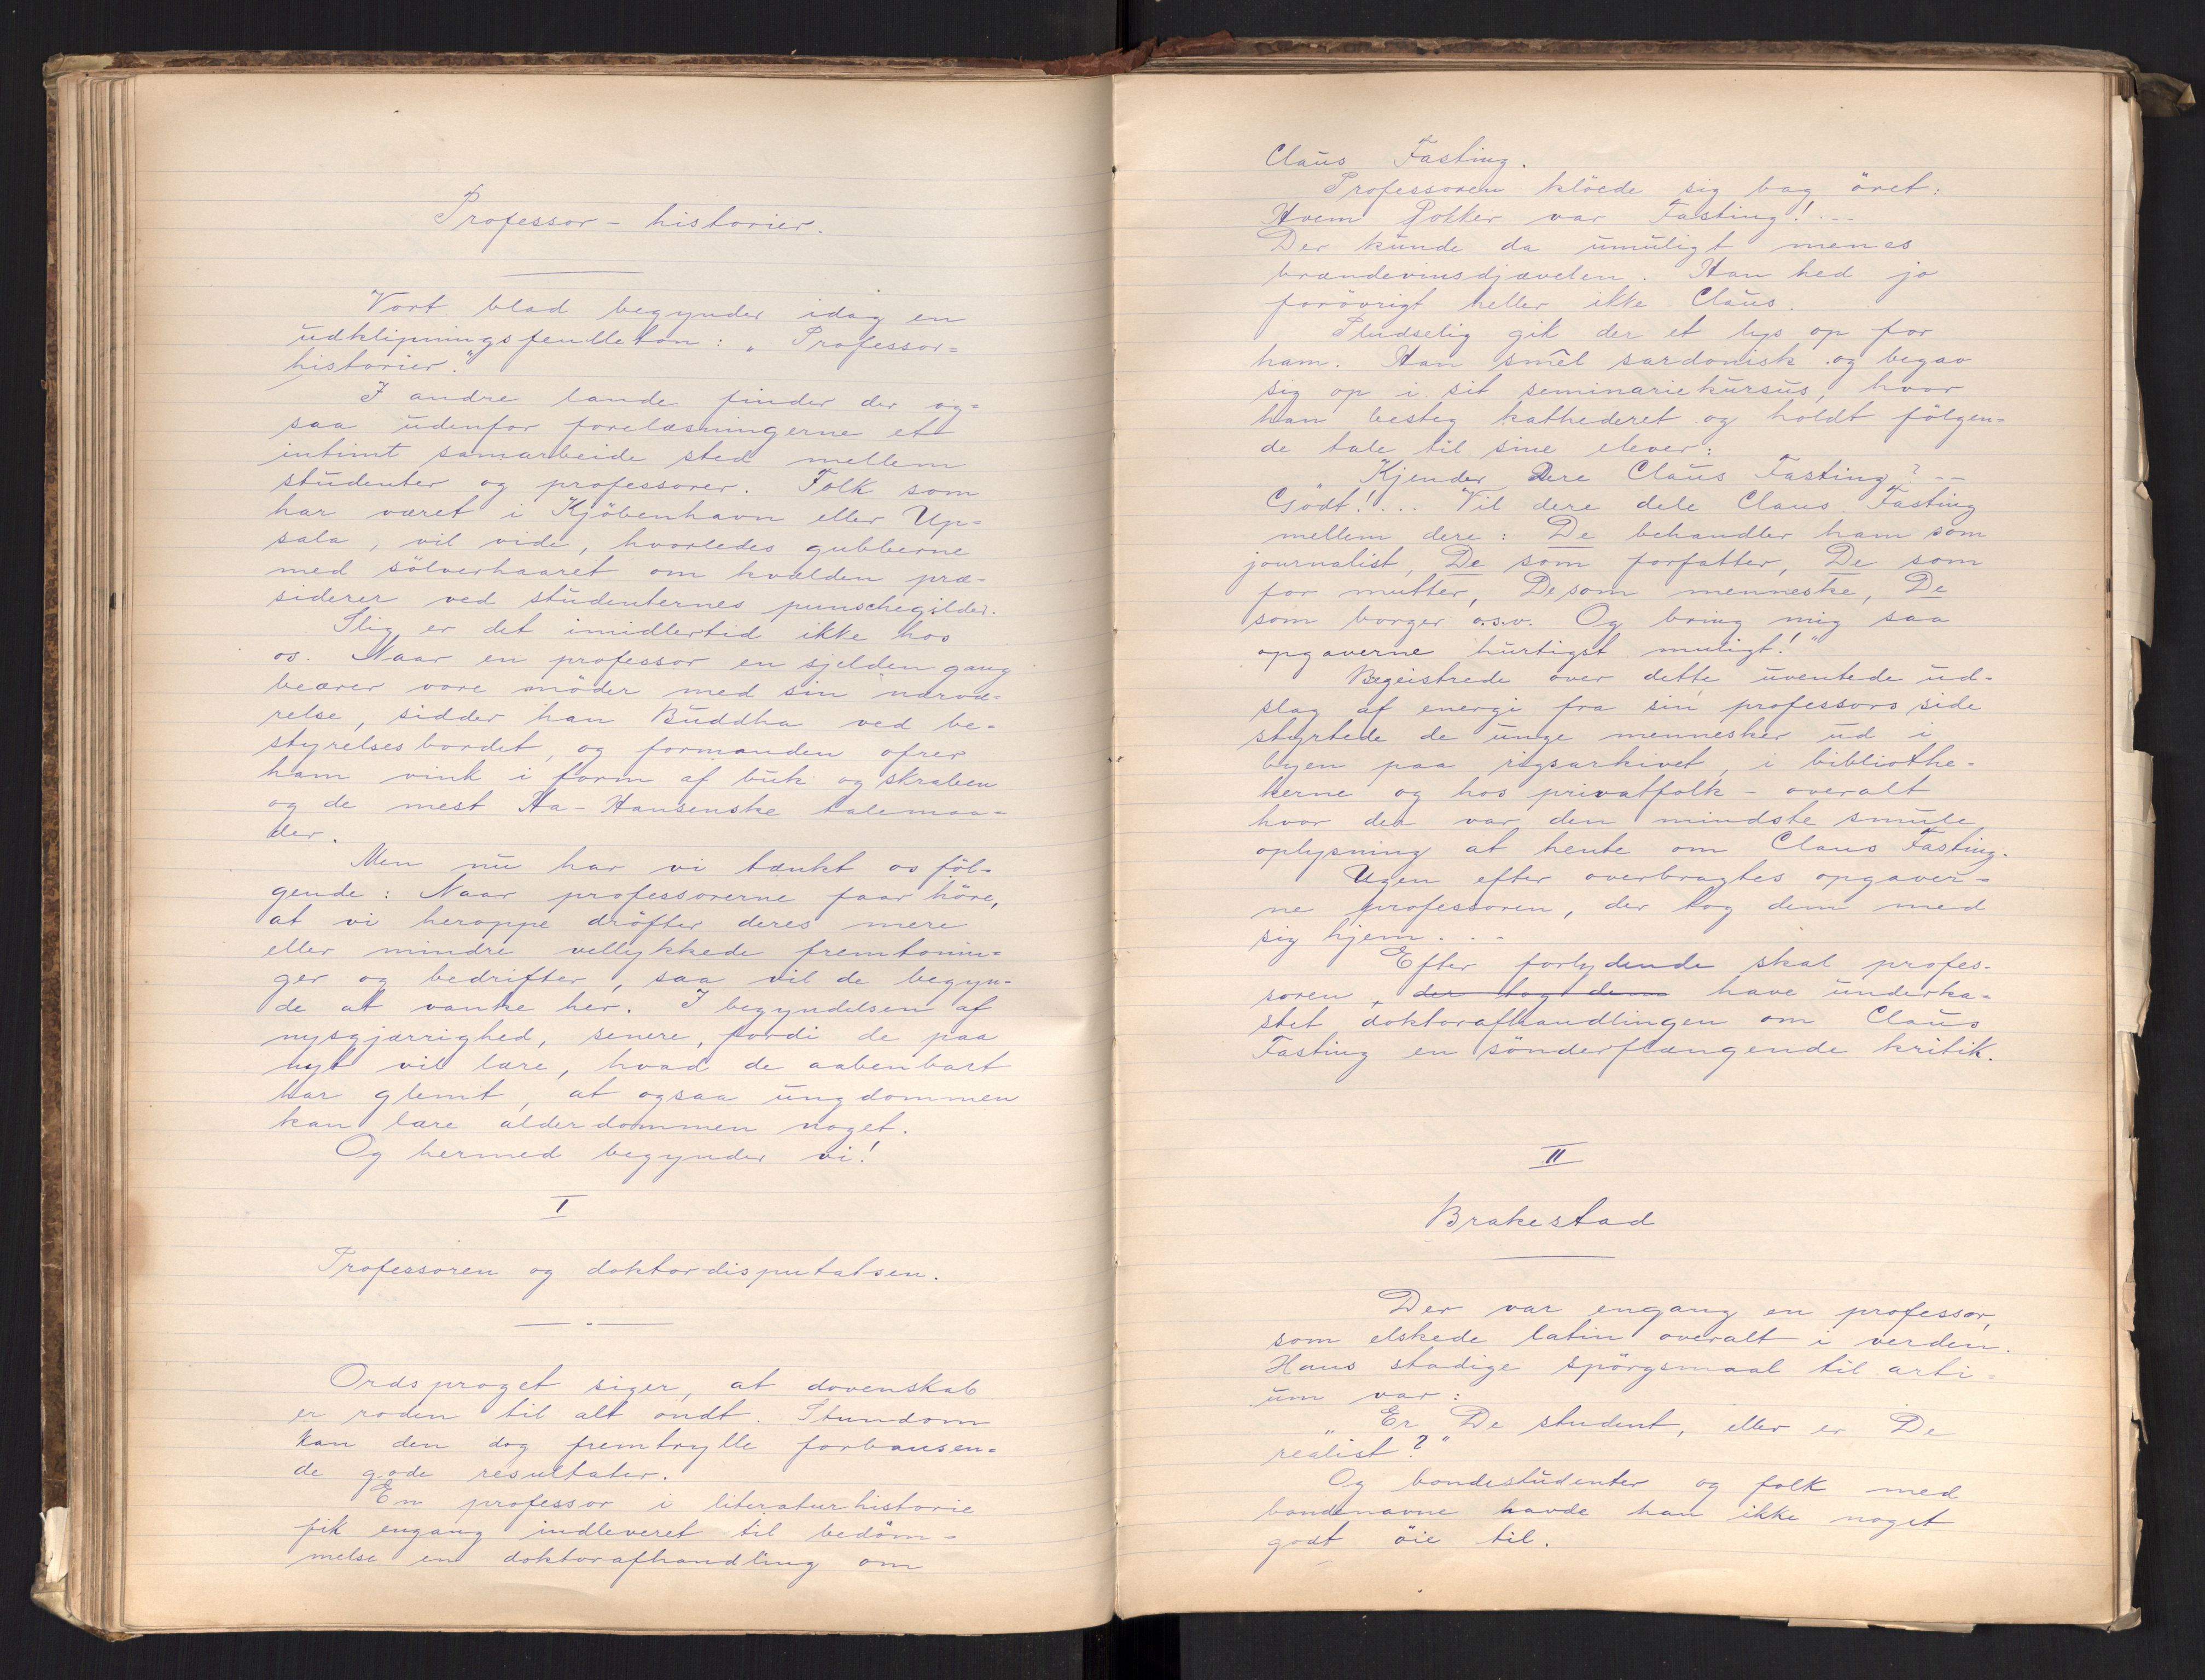 Professor-historier.
Vort blad begynder idag en
udklipningsfeuilleton: „Professor=
historier."
I andre lande finder der og=
saa udenfor forelæsningerne et
intimt samarbeide sted mellem
studenter og professorer. Folk som
har været i Kjöbenhavn eller Up=
sala, vil vide, hvorledes gubberne
med sölverhaaret om kvælden præ-
siderer ved studenternes punschegilder.
Slig er det imidlertid ikke hos
os. Naar en professor en sjelden gang
beærer vore möder med sin nærvæ-
relse, sidder han Buddha ved be-
styrelsesbordet, og formanden ofrer
ham vink i form af buk og skraben
og de mest Ha-Hansenske talemaa=
der.
Men nu har vi tænkt os föl-
gende: Naar professorerne faar höre,
at vi heroppe dröfter deres mere
eller mindre vellykkede fremtonin=
ger og bedrifter, saa vil de begyn-
de at vanke her. I begyndelsen af
nysgjærrighed, senere, fordi de paa
nyt vil lære, hvad de aabenbart
har glemt, at ogsaa ungdommen
kan lære alderdommen noget.
Og hermed begynder vi!
I
Professoren og doktordisputatsen.
Ordsproget siger, at dovenskab
er roden til alt ondt. Stundom
kan den dog fremtrylle forbausen=
de gode resultater.
En professor i literaturhistorie
fik engang indleveret til bedöm=
melse en doktorafhandling om
Claus Fasting.
Professoren klöede sig bag öret:
Hvem Pokker var Fasting!...
Der kunde da umuligt menes
brændevinsdjævelen. Han hed jo
forövrigt heller ikke Claus.
Pludselig gik der et lys op for
ham. Han smil sardonisk og begav
sig op i sit seminariekursus, hvor
han besteg kathederet og holdt fölgen=
de tale til sine elever:
„Kjender Dere Claus Fasting? --
Godt!... Vil dere dele Claus Fasting
mellem dere: De behandler ham som
journalist, De som forfatter, De som
for mutter, De som menneske, De
som borger o.s.v. Og bring mig saa
opgaverne hurtigst muligt!"
Begeistrede over dette uventede ud-
slag af energi fra sin professors side
styrtede de unge mennesker ud i
byen paa rigsarkivet, i bibliothe-
kerne og hos privatfolk - overalt
hvor der var den mindste smule
oplysning at hente om Claus Fasting.
Ugen efter overbragtes opgaver=
ne professoren, der tog dem med
sig hjem...
Efter forlydende skal profes-
soren, der tog dem have underka=
stet doktorafhandlingen om Claus
Fasting en sönderflængende kritik.
II
Brakestad
Der var engang en professor,
som elskede latin overalt i verden.
Hans stadige spörgsmaal til arti=
um var:
„Er De student, eller er De
realist?"
Og bondestudenter og folk med
bondenavne havde han ikke noget
godt öie til.